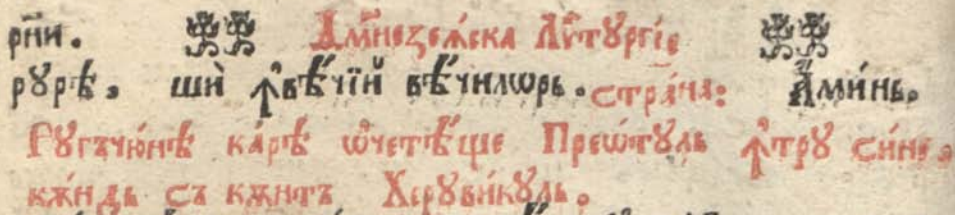 рїй. Дм҃незеѧ́ска Лїтꙋргі́е
рꙋрѣ, шѝ ꙟ҆вѣ́чїй вѣ́чилѡрь. стра́на: А҆ми́нь.
Рꙋгъчю́нѣ ка́рѣ ѡ҆четѣ́ще Преѡ́тꙋль ꙟ҆трꙋ си́не,
кѫ́ндь съ кѫ́нтъ Херꙋви́кꙋль.